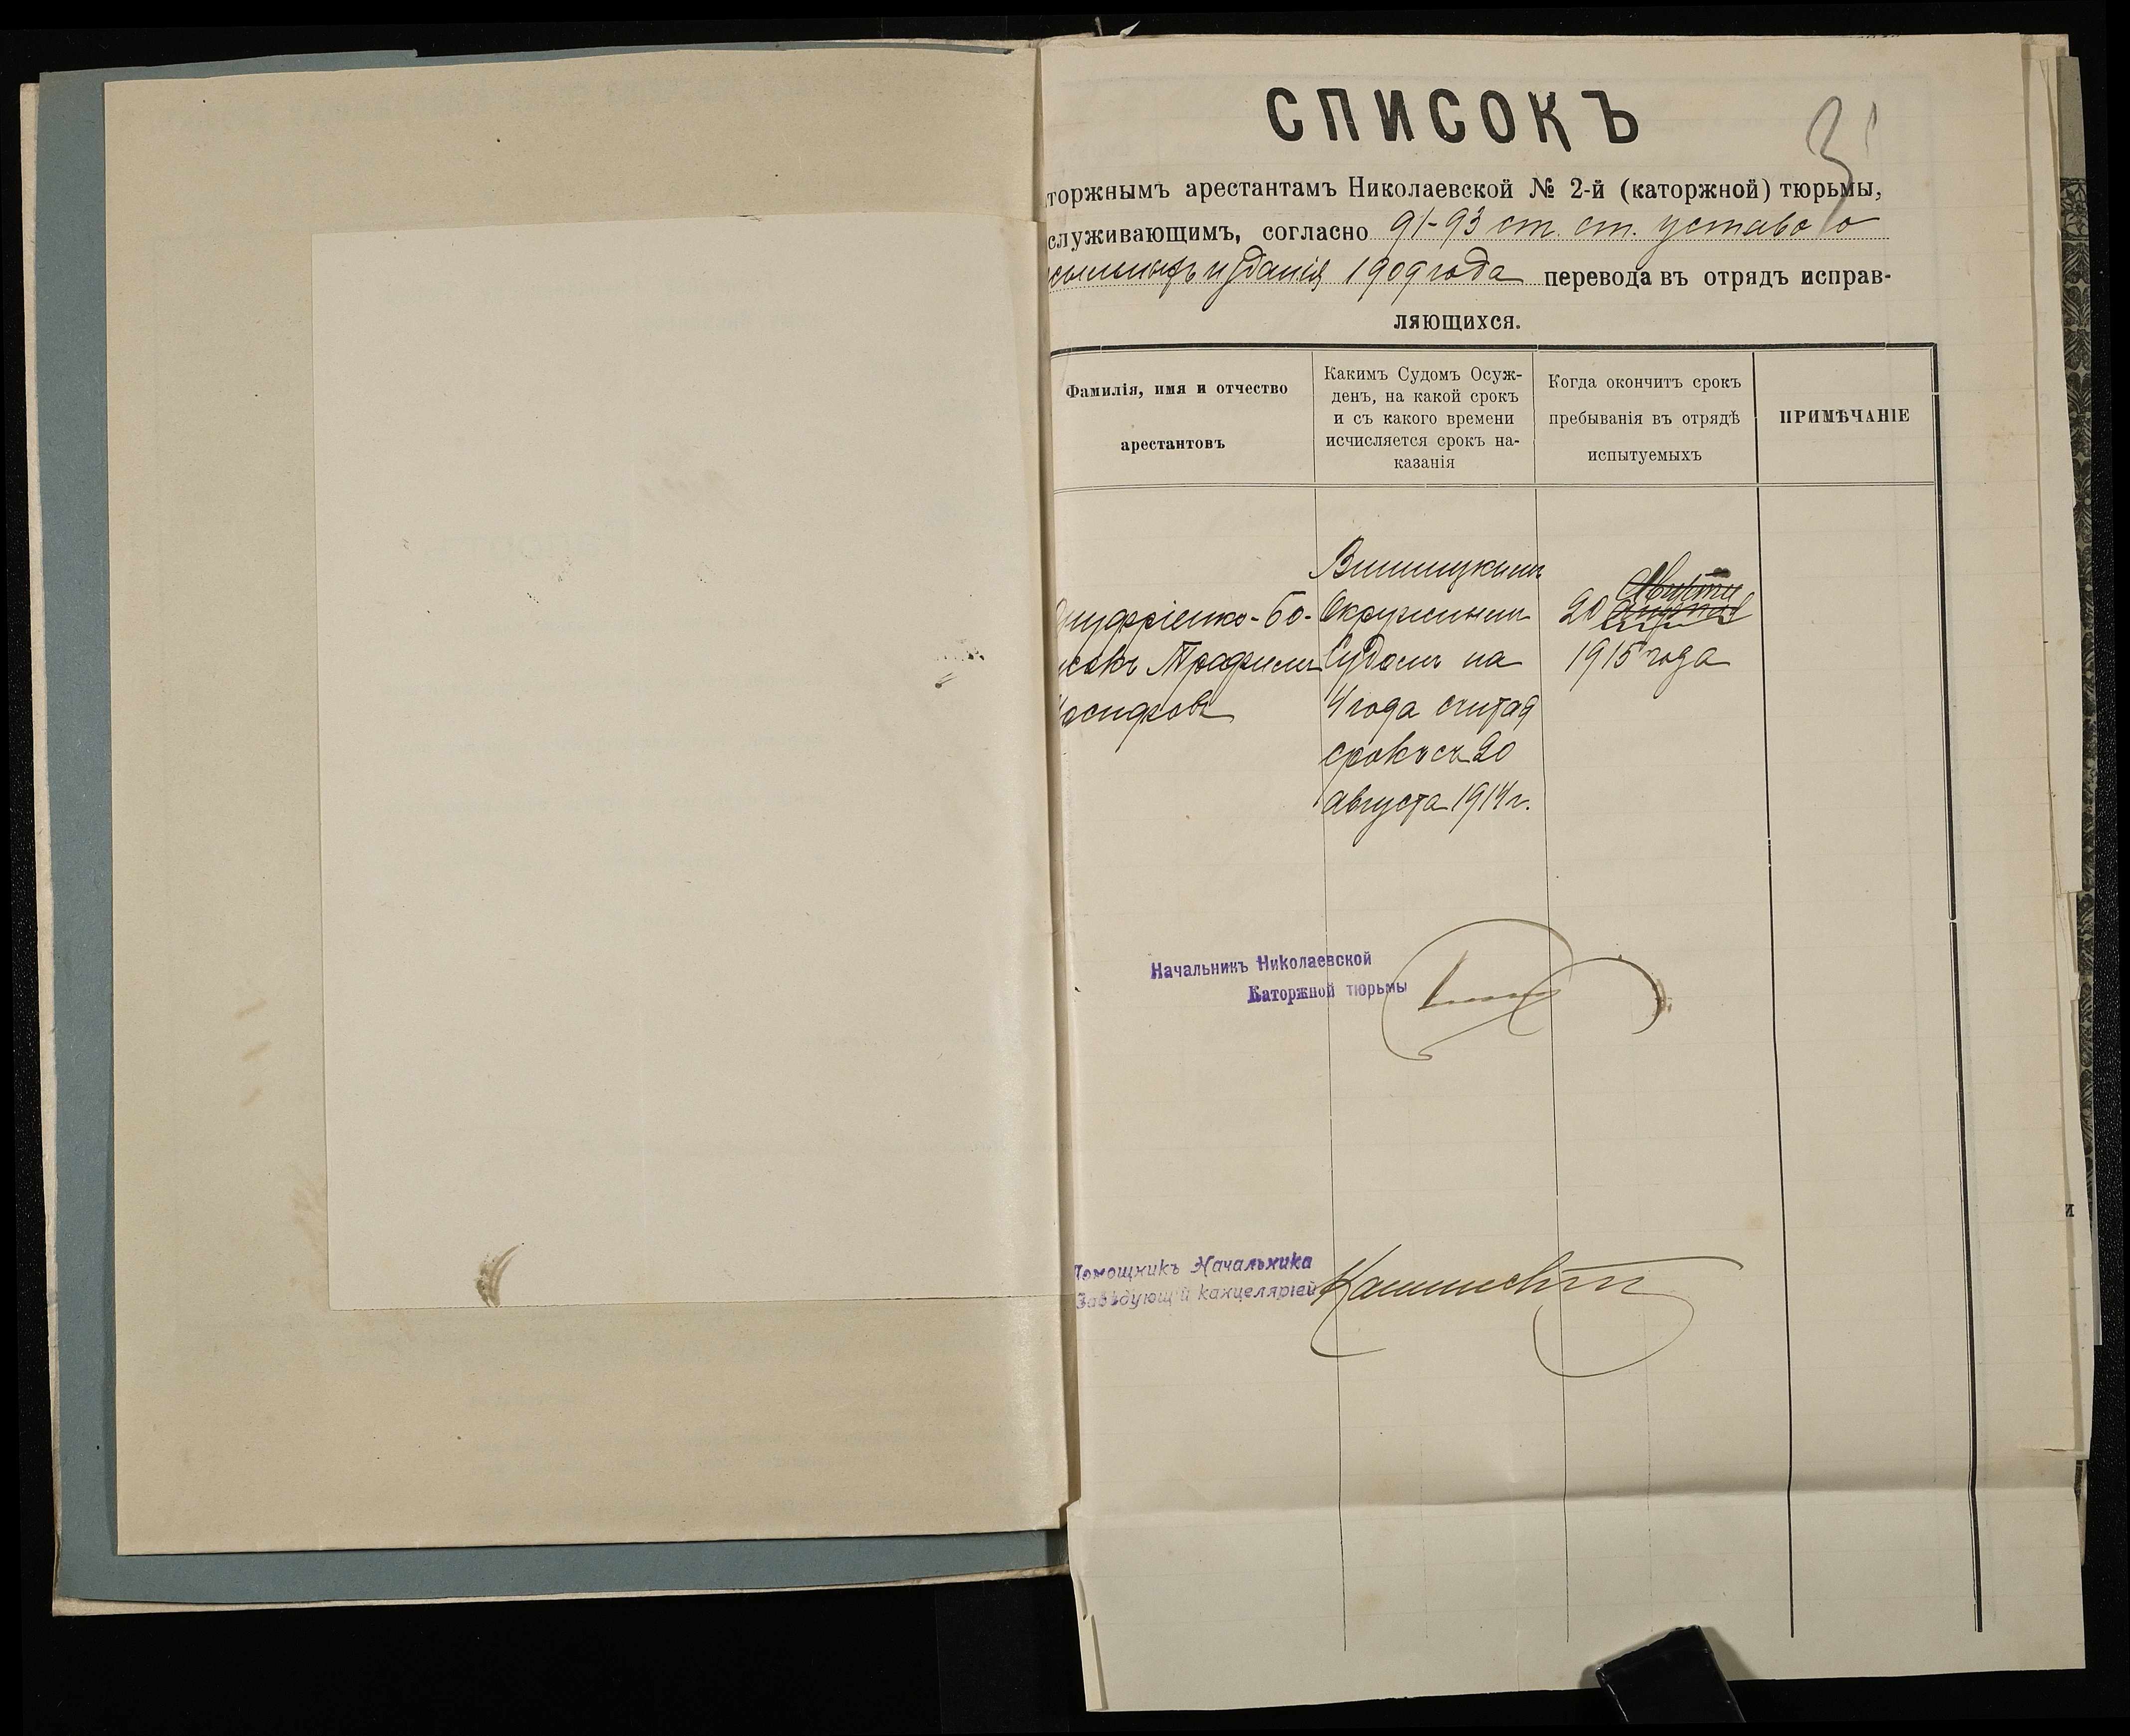 СПИСОКЪ
3
торжнымъ арестантамъ Николаевской № 2-й (каторжной) тюрьмы,
служивающимъ, согласно 91-93 ст. ст. устава о
сыльныхъ изданія 1909 года перевода въ отрядъ исправ-
ляющихся.
Фамилія, имя и отчество
арестантовъ
Какимъ Судомъ Осуж-
денъ, на какой срокъ
и съ какого времени
исчисляется срокъ на-
казанія
Когда окончитъ срокъ
пребыванія въ отрядѣ
испытуемыхъ
ПРИМѢЧАНІЕ
нуфріенко-Бо-
Трофимъ
Винницкимъ
Окружнымъ
Судомъ на
4 года считая
срокъ съ 20
августа 1914 г.
20 Августа
1915 года
Начальникъ Николаевской
Каторжной тюрьмы
Помощникъ Начальника
Завѣдующій канцеляріей